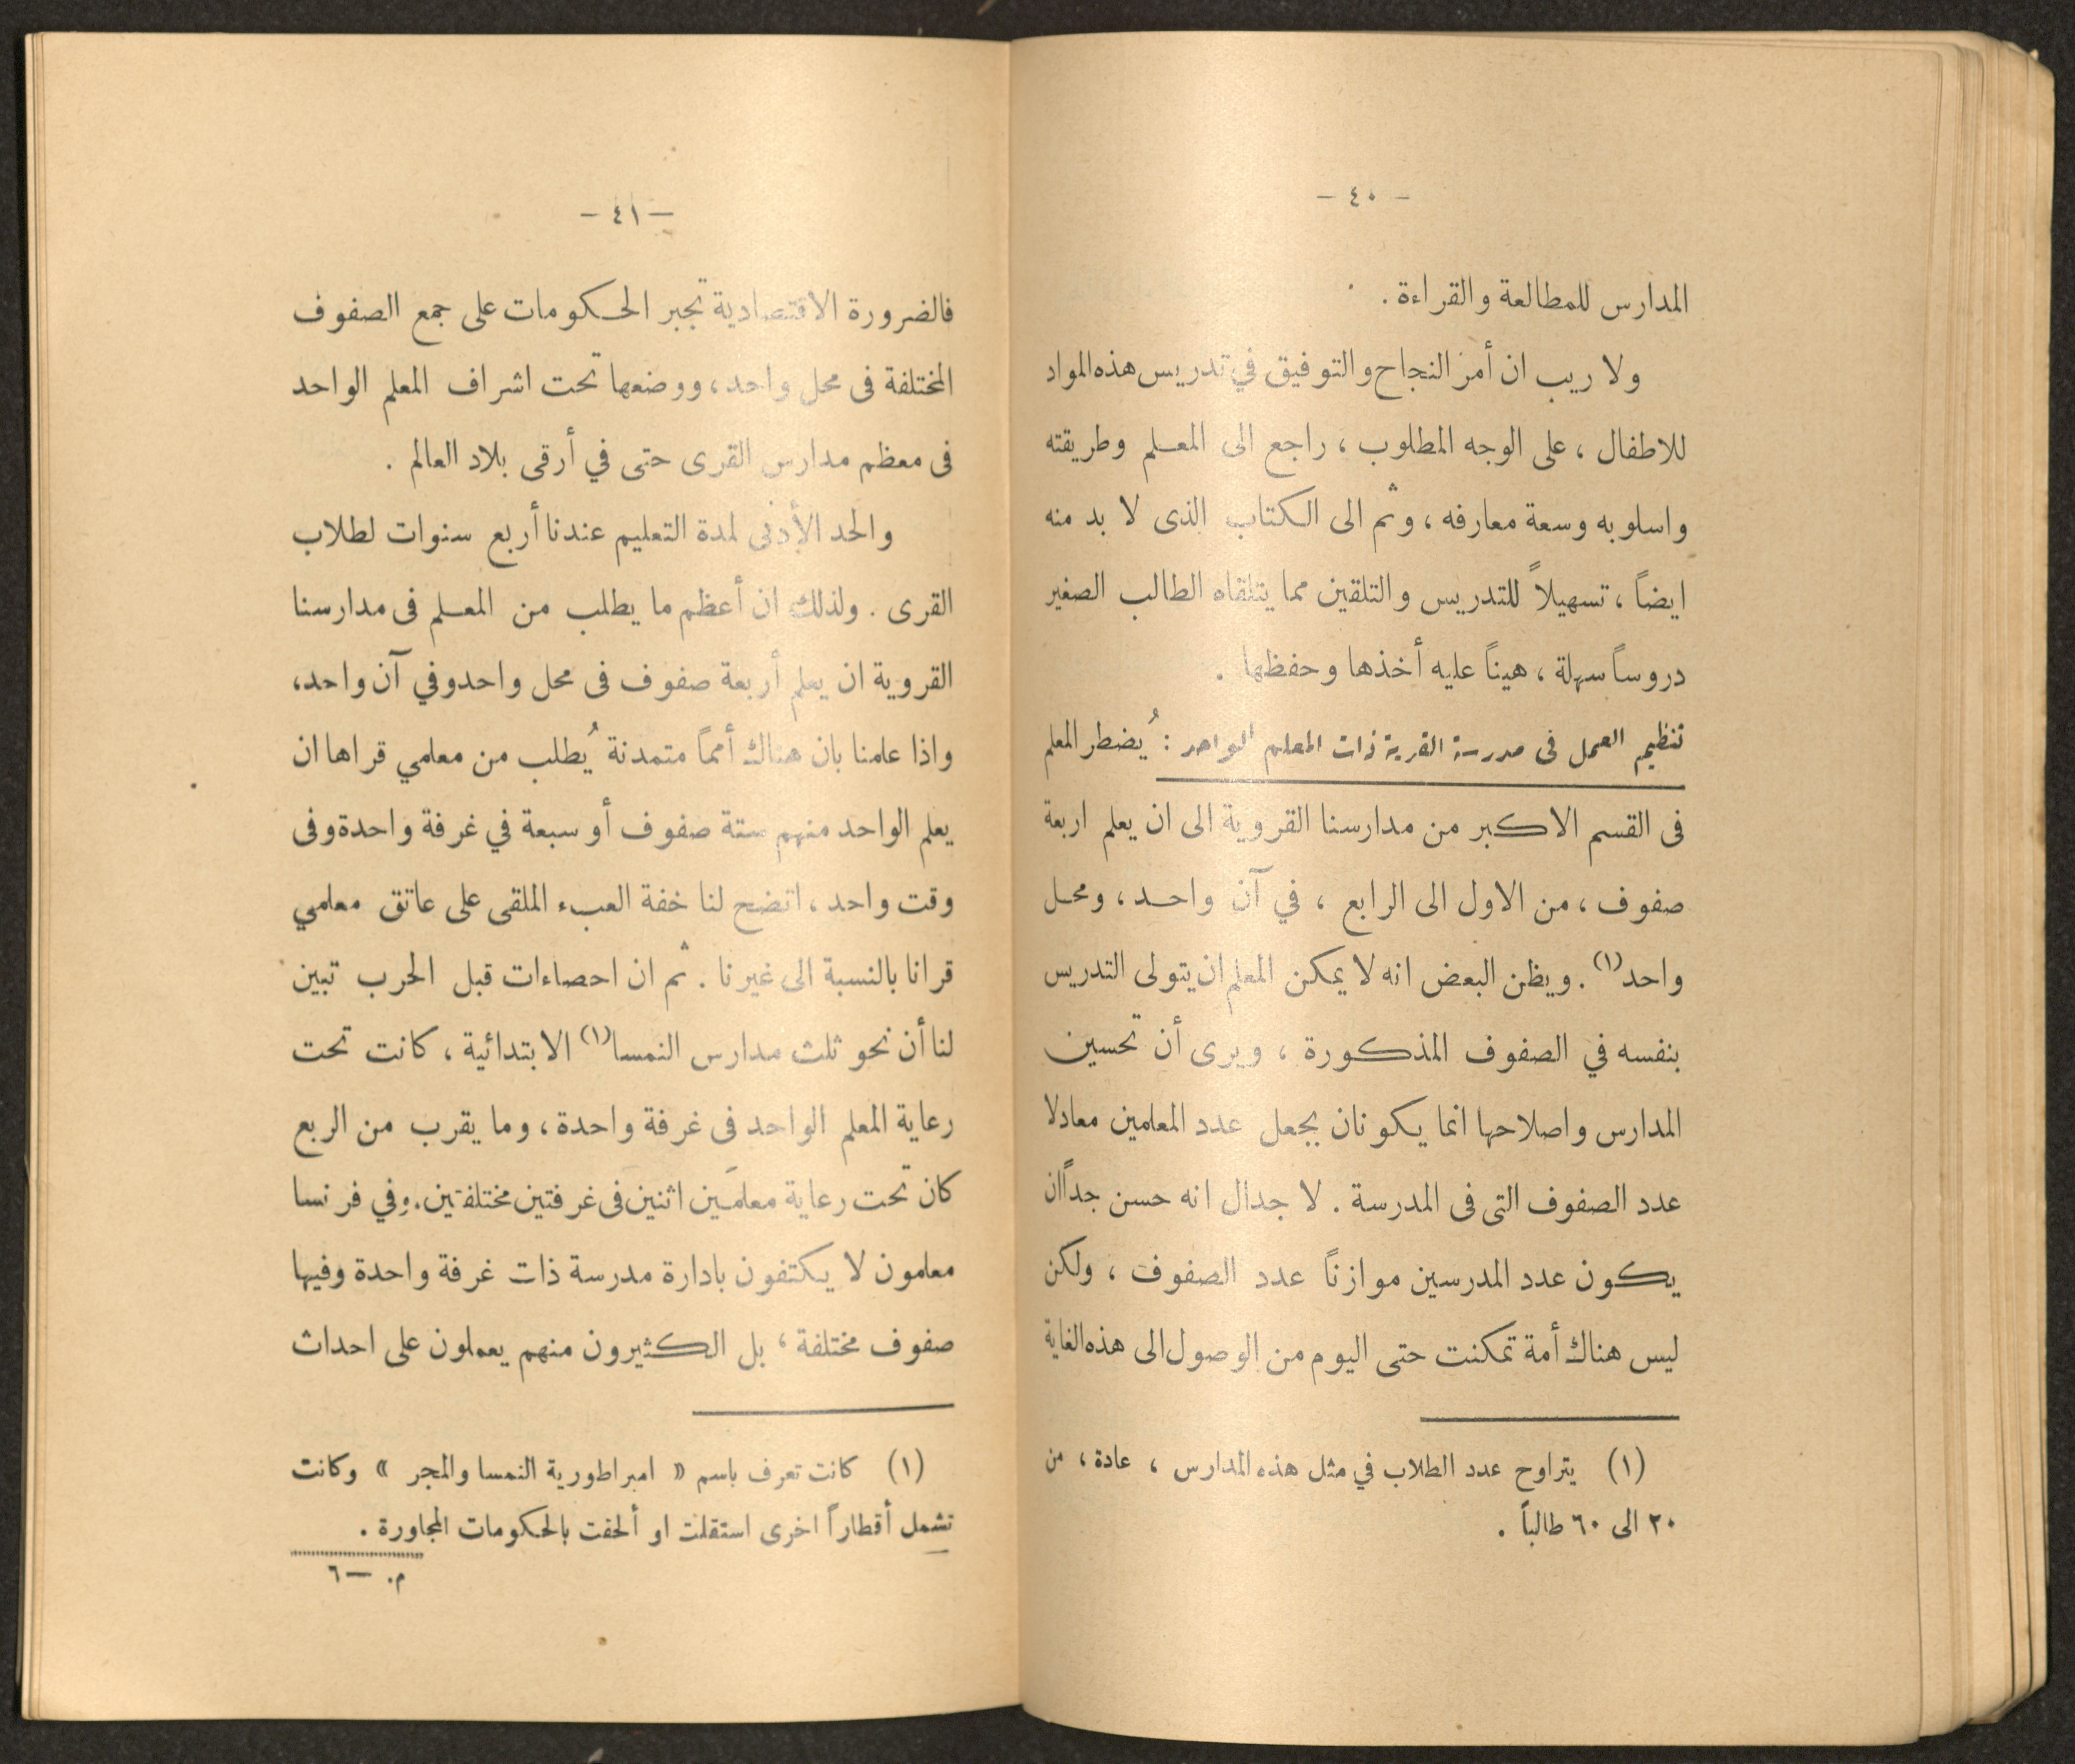 - ٤٠ -
المدارس للمطالعة والقراءة .
ولا ريب ان أمر النجاح والتوفيق في تدريس هذه المواد
للاطفال ، على الوجه المطلوب ، راجع الى المعلم وطريقته
واسلوبه وسعة معارفه ، وثم الى الكتاب الذى لا بد منه
ايضاً ، تسهيلاً للتدريس والتلقين مما يتلقاه الطالب الصغير
دروساً سهلة ، هيناً عليه أخذها وحفظها .
تنظيم العمل فى مدرسة القرية ذات المعلم الواحد : يُضطر المعلم
فى القسم الاكبر من مدارسنا القروية الى ان يعلم اربعة
صفوف ، من الاول الى الرابع ، في آن واحد ، ومحل
واحد (١) . ويظن البعض انه لا يمكن المعلم ان يتولى التدريس
بنفسه في الصفوف المذكورة ، ويرى أن تحسين
المدارس واصلاحها انما يكونان بجعل عدد المعلمين معادلا
عدد الصفوف التى فى المدرسة . لا جدال انه حسن جداً ان
يكون عدد المدرسين موازناً عدد الصفوف ، ولكن
ليس هناك أمة تمكنت حتى اليوم من الوصول الى هذه الغاية
(١) يتراوح عدد الطلاب في مثل هذه المدارس ، عادة ، من
٢٠ الى ٦٠ طالباً .
- ٤١ -
فالضرورة الاقتصادية تجبر الحكومات على جمع الصفوف
المختلفة فى محل واحد ، ووضعها تحت اشراف المعلم الواحد
فى معظم مدارس القرى حتى في أرقى بلاد العالم .
والحد الأدنى لمدة التعليم عندنا أربع سنوات لطلاب
القرى . ولذلك ان أعظم ما يطلب من المعلم فى مدارسنا
القروية ان يعلم أربعة صفوف فى محل واحد وفي آن واحد ،
واذا علمنا بان هناك أمماً متمدنة يُطلب من معلمي قراها ان
يعلم الواحد منهم ستة صفوف أو سبعة في غرفة واحدة وفى
وقت واحد ، اتضح لنا خفة العبء الملقى على عاتق معلمي
قرانا بالنسبة الى غيرنا . ثم ان احصاءات قبل الحرب تبين
لنا أن نحو ثلث مدارس النمسا (١) الابتدائية ، كانت تحت
رعاية المعلم الواحد في غرفة واحدة ، وما يقرب من الربع
كان تحت رعاية معلمَين اثنين فى غرفتين مختلفتين . وفي فرنسا
معلمون لا يكتفون بادارة مدرسة ذات غرفة واحدة وفيها
صفوف مختلفة ، بل الكثيرون منهم يعملون على احداث
(١) كانت تعرف باسم « امبراطورية النمسا والمجر » وكانت
تشمل أقطاراً اخرى استقلت او ألحقت بالحكومات المجاورة .
م. — ٦